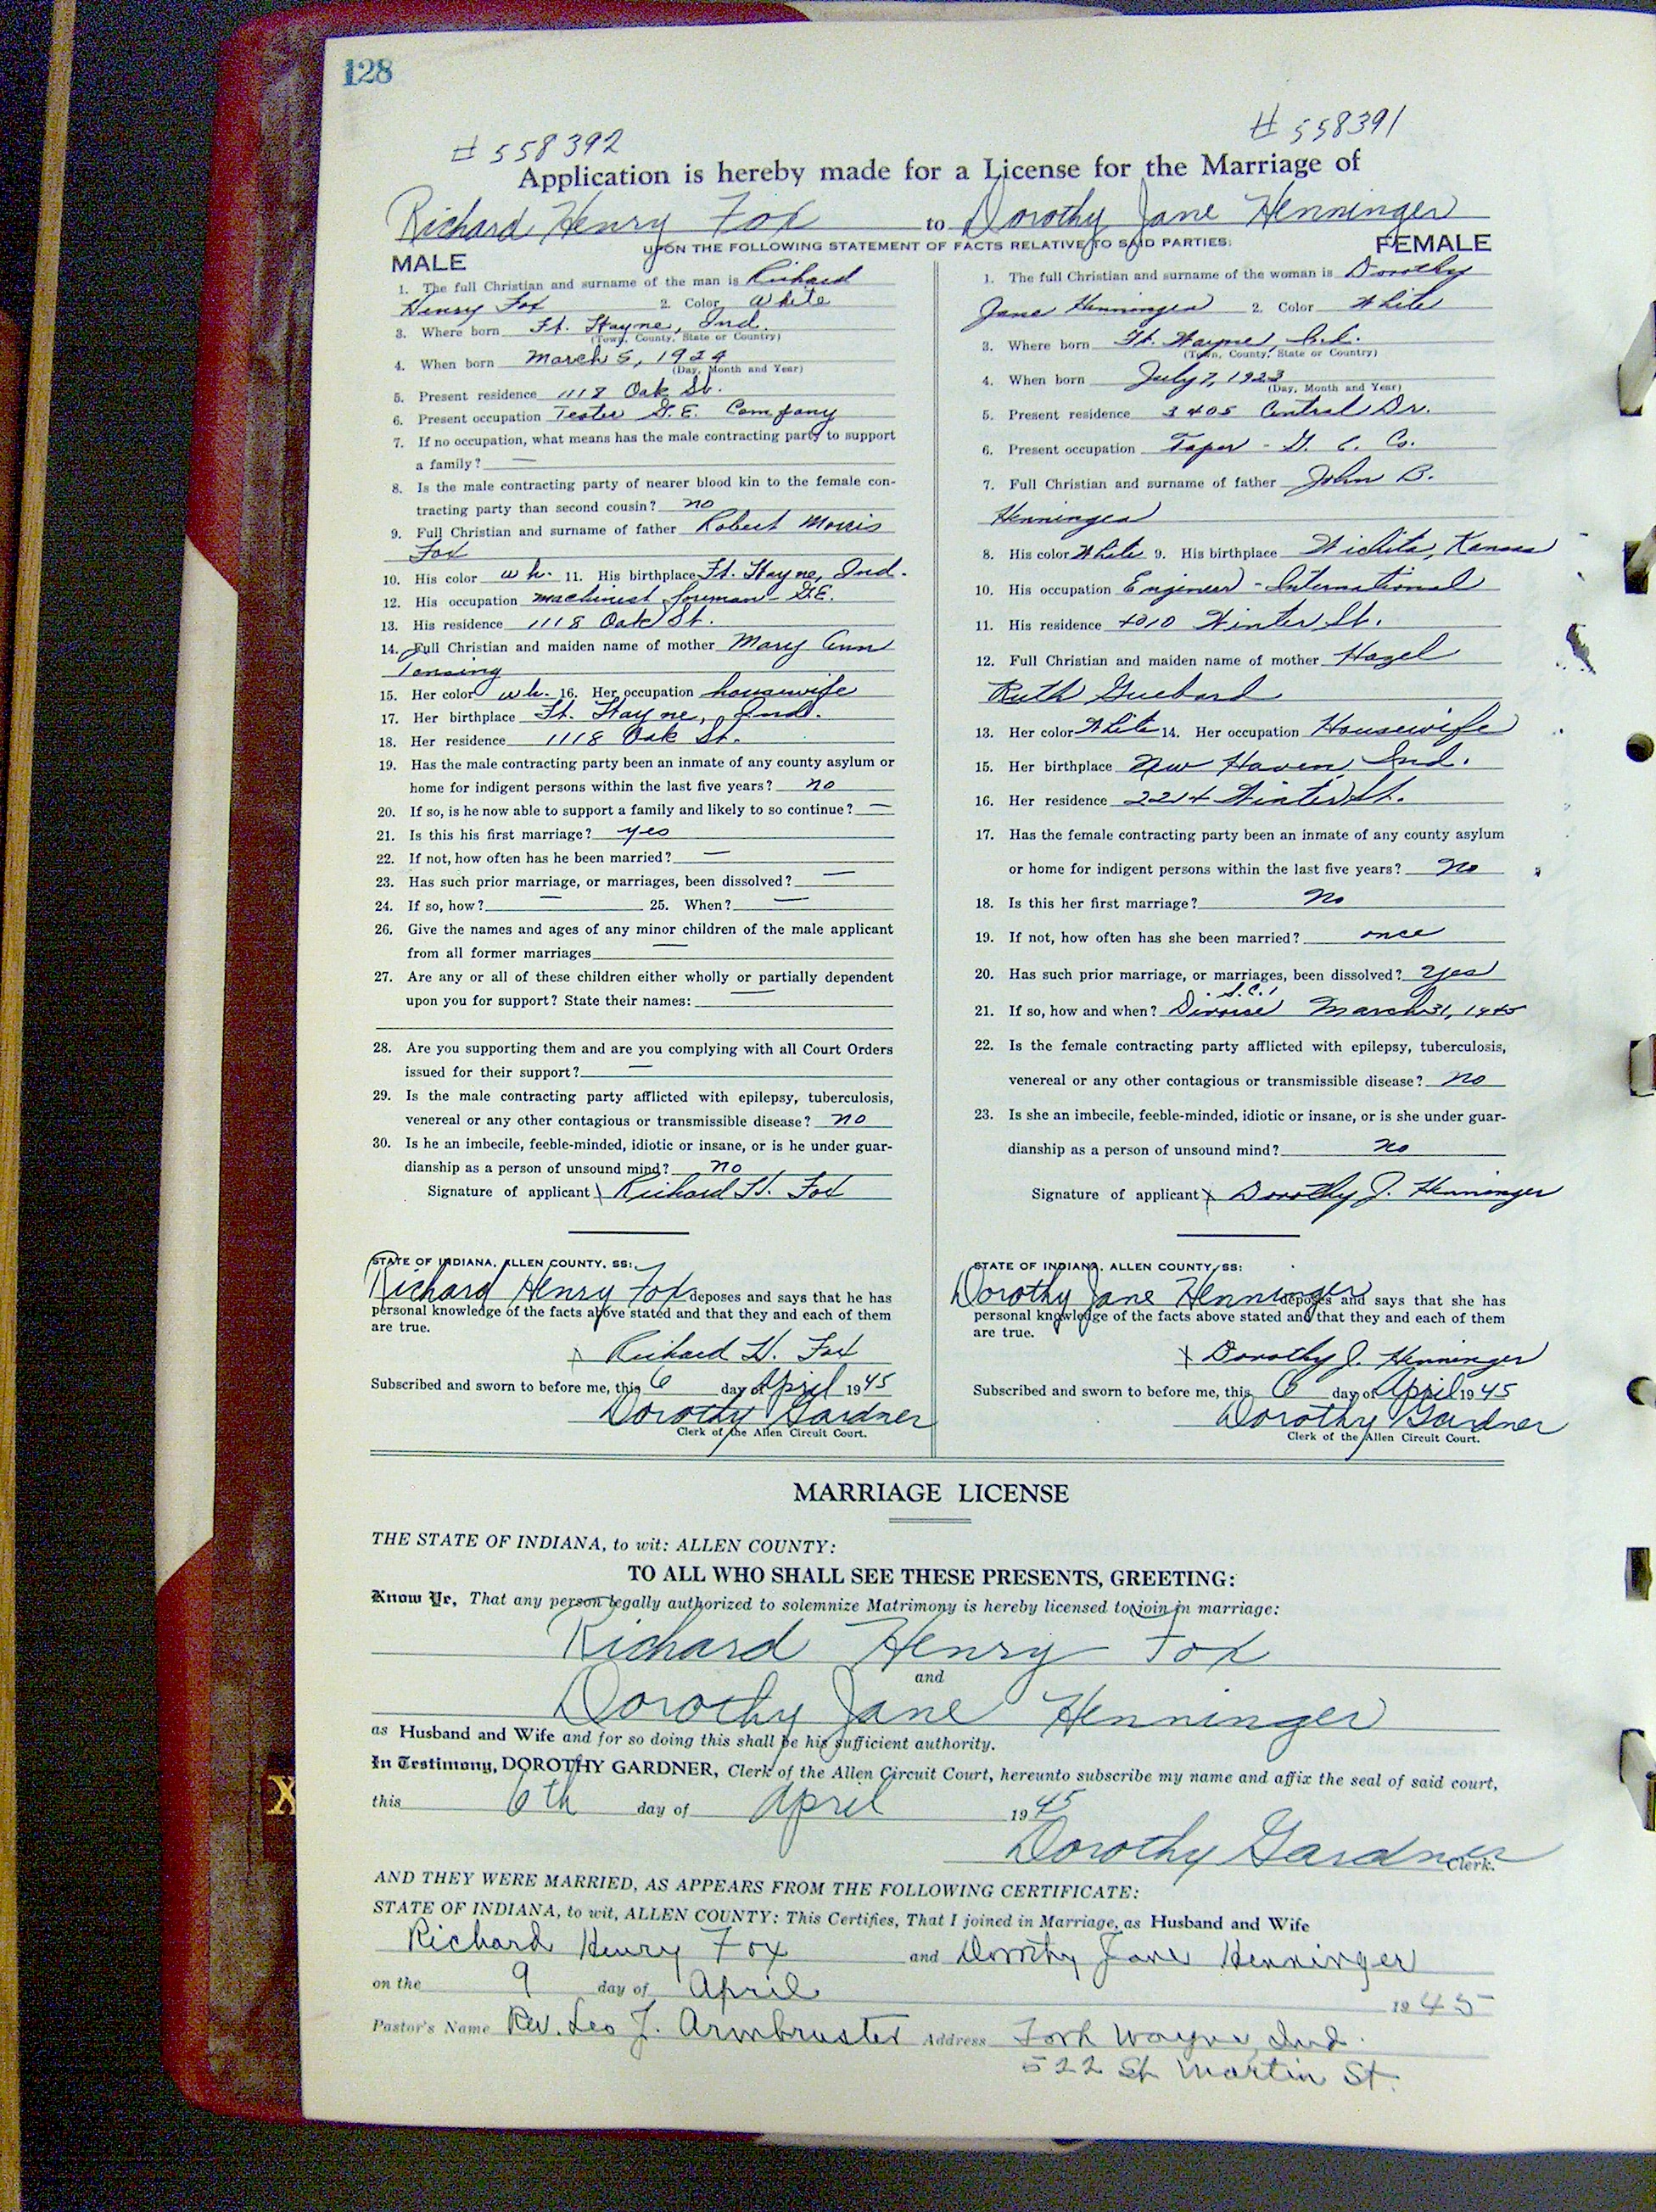 128
# 558392
# 558391
Application is hereby made for a License for the Marriage of
Richard Henry Fox to Dorothy Jane Henninger
UPON THE FOLLOWING STATEMENT OF FACTS RELATIVE TO SAID PARTIES:
MALE
1. The full Christian and surname of the man is Richard
Henry Fox 2. Color White
3. Where born Ft. Wayne, Ind.
(Town, County, State or Country)
4. When born March 5, 1924
(Day, Month and Year)
5. Present residence 1118 Oak St.
6. Present occupation Tester G.E. Company
7. If no occupation, what means has the male contracting party to support
a family? —
8. Is the male contracting party of nearer blood kin to the female con-
tracting party than second cousin? no
9. Full Christian and surname of father Robert Morris
Fox
10. His color wh. 11. His birthplace Ft. Wayne, Ind.
12. His occupation machinist foreman - G.E.
13. His residence 1118 Oak St.
14. Full Christian and maiden name of mother Mary Ann
Tonsing
15. Her color wh. 16. Her occupation housewife
17. Her birthplace Ft. Wayne, Ind.
18. Her residence 1118 Oak St.
19. Has the male contracting party been an inmate of any county asylum or
home for indigent persons within the last five years? no
20. If so, is he now able to support a family and likely to so continue? —
21. Is this his first marriage? yes
22. If not, how often has he been married? —
23. Has such prior marriage, or marriages, been dissolved? —
24. If so, how? — 25. When? —
26. Give the names and ages of any minor children of the male applicant
from all former marriages —
27. Are any or all of these children either wholly or partially dependent
upon you for support? State their names: —
28. Are you supporting them and are you complying with all Court Orders
issued for their support? —
29. Is the male contracting party afflicted with epilepsy, tuberculosis,
venereal or any other contagious or transmissible disease? no
30. Is he an imbecile, feeble-minded, idiotic or insane, or is he under guar-
dianship as a person of unsound mind? no
Signature of applicant x Richard H. Fox
STATE OF INDIANA, ALLEN COUNTY, SS:
Richard Henry Fox deposes and says that he has
personal knowledge of the facts above stated and that they and each of them
are true.
x Richard H. Fox
Subscribed and sworn to before me, this 6 day of April 1945
Dorothy Gardner
Clerk of the Allen Circuit Court.
FEMALE
1. The full Christian and surname of the woman is Dorothy
Jane Henninger 2. Color White
3. Where born Ft. Wayne, Ind.
(Town, County, State or Country)
4. When born July 7, 1923
(Day, Month and Year)
5. Present residence 3405 Central Dr.
6. Present occupation Taper - G. E. Co.
7. Full Christian and surname of father John B.
Henninger
8. His color White 9. His birthplace Wichita, Kansas
10. His occupation Engineer - International
11. His residence 4010 Winter St.
12. Full Christian and maiden name of mother Hazel
Ruth Guebard
13. Her color White 14. Her occupation Housewife
15. Her birthplace New Haven, Ind.
16. Her residence 2214 Winter St.
17. Has the female contracting party been an inmate of any county asylum
or home for indigent persons within the last five years? No
18. Is this her first marriage? No
19. If not, how often has she been married? once
20. Has such prior marriage, or marriages, been dissolved? yes
S.C.1
21. If so, how and when? Divorce March 31, 1945
22. Is the female contracting party afflicted with epilepsy, tuberculosis,
venereal or any other contagious or transmissible disease? no
23. Is she an imbecile, feeble-minded, idiotic or insane, or is she under guar-
dianship as a person of unsound mind? no
Signature of applicant x Dorothy J. Henninger
STATE OF INDIANA, ALLEN COUNTY, SS:
Dorothy Jane Henninger deposes and says that she has
personal knowledge of the facts above stated and that they and each of them
are true.
x Dorothy J. Henninger
Subscribed and sworn to before me, this 6 day of April 1945
Dorothy Gardner
Clerk of the Allen Circuit Court.
MARRIAGE LICENSE
THE STATE OF INDIANA, to wit: ALLEN COUNTY:
TO ALL WHO SHALL SEE THESE PRESENTS, GREETING:
Know Ye, That any person legally authorized to solemnize Matrimony is hereby licensed to join in marriage:
Richard Henry Fox
and
Dorothy Jane Henninger
as Husband and Wife and for so doing this shall be his sufficient authority.
In Testimony, DOROTHY GARDNER, Clerk of the Allen Circuit Court, hereunto subscribe my name and affix the seal of said court,
this 6th day of April 1945
Dorothy Gardner
Clerk.
AND THEY WERE MARRIED, AS APPEARS FROM THE FOLLOWING CERTIFICATE:
STATE OF INDIANA, to wit, ALLEN COUNTY: This Certifies, That I joined in Marriage, as Husband and Wife
Richard Henry Fox and Dorothy Jane Henninger
on the 9 day of April 1945
Pastor's Name Rev. Leo J. Armbruster Address Fort Wayne, Ind.
522 St Martin St.
X